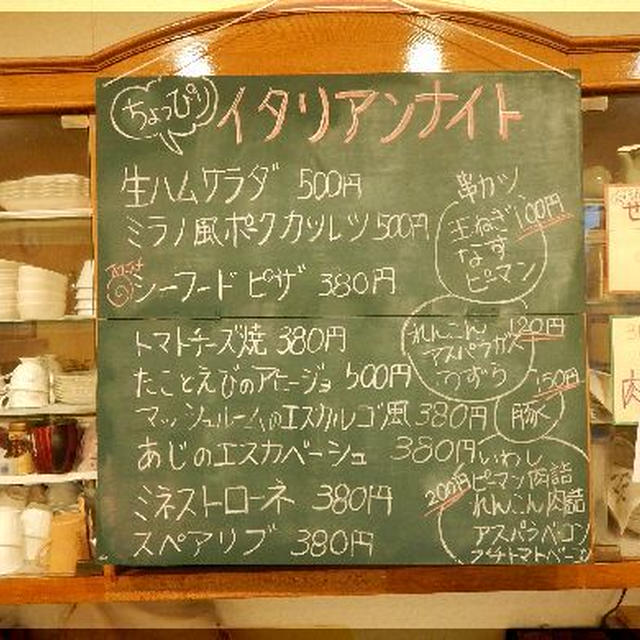 ちょっぴり
イタリアンナイト
生ハムサラダ 500円
ミラノ風ポークカツレツ 500円
シーフードピザ 380円
トマトチーズ焼 380円
たことえびのアヒージョ 500円
マッシュルームのエスカルゴ風 380円
あじのエスカベーシュ 380円
ミネストローネ 380円
スペアリブ 380円
串カツ
玉ねぎ 100円
なす
ピーマン
れんこん 120円
アスパラガス
うずら
150円
豚く
いわし
200円 ピーマン肉詰
れんこん肉詰
アスパラベーコン
プチトマトベーコ
肉